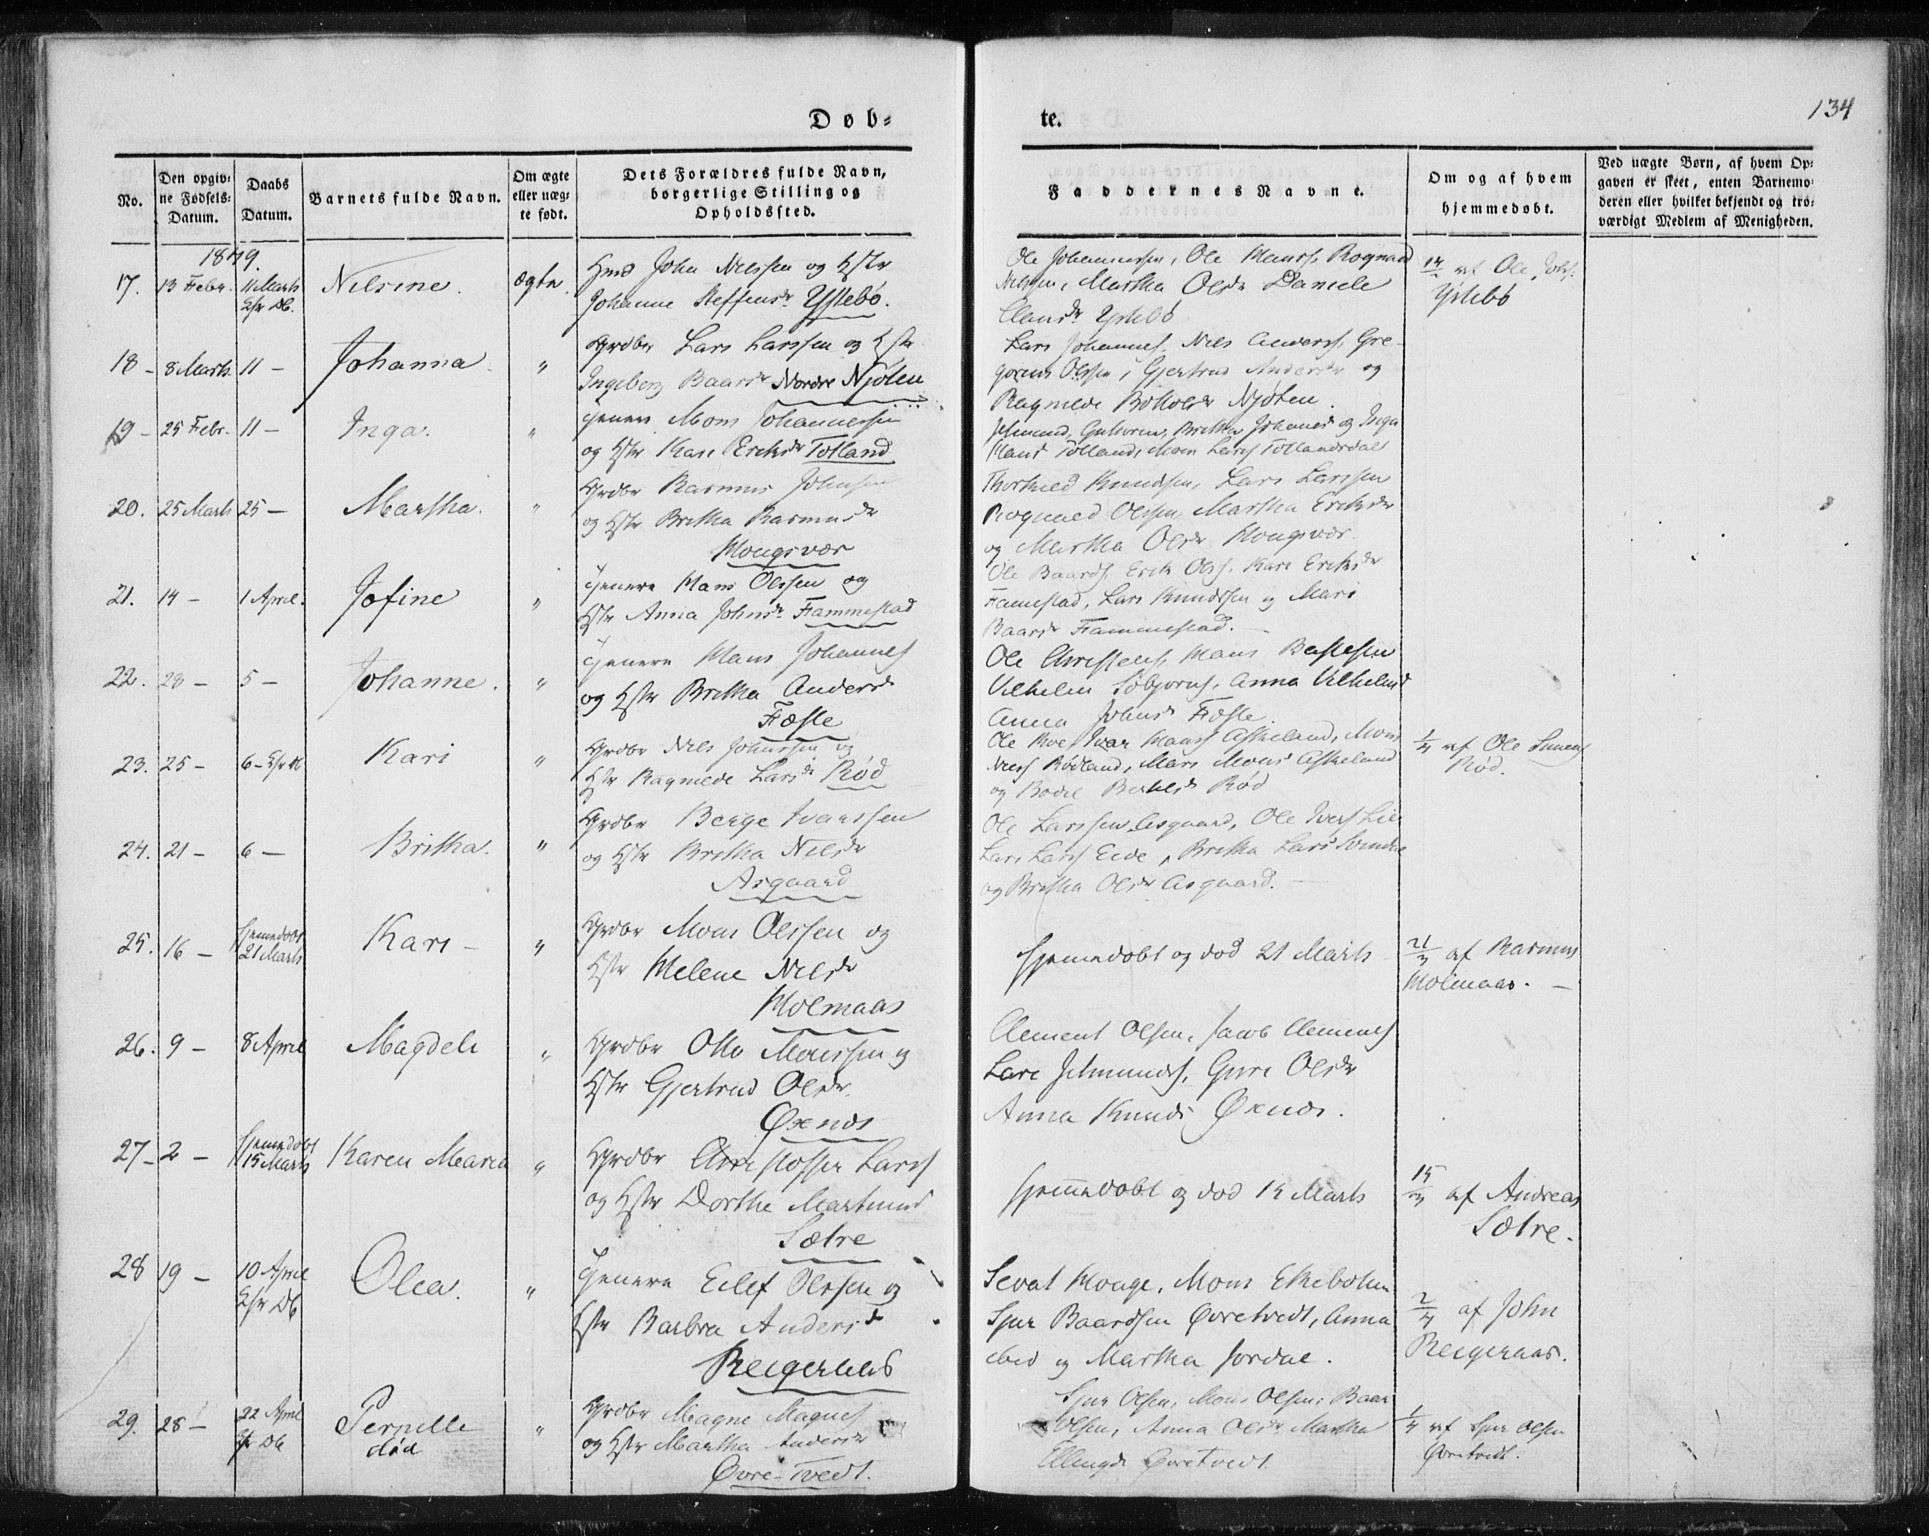 Døb=
te.
134
No.
Den opgiv=
ne Fødsels=
Datum.
Daabs
Datum.
Barnets fulde Navn.
Om ægte
eller uæg=
te født.
Dets Forældres fulde Navn,
borgerlige Stilling og
Opholdssted.
Faddernes Navne.
Om og af hvem
hjemmedøbt.
Ved uægte Børn, af hvem Op=
gaven er skeet, enten Barnemo=
deren eller hvilket bekjendt og tro=
værdigt Medlem af Menigheden.
1849.
17. 13 Febr. 11 Marts Nilsine. ægte. John Nilssen og Hstr
Johanne Steffensdr Ystebø.
Ole Johannessen, Ole Hanss, Rognald
Nilssen, Martha Olsdr Daniele
Clausdr Ystebø
af Ole Johs.
Ystebø
18 - 8 Marts 11 - Johanna " Grdbr Lars Larssen og Hstr
Ingeborg Baardsdr Nordre Njøten
Lars Johannes, Nils Anderss, Gre-
gorius Olssen, Gjertrud Andersdr og
Ragnilde Njøten.
19 - 25 Febr. 11 - Inga. " Mons Johannessen
og Hstr Kari Eriksdr Tolland
Jetmund Guttorms, Britha Johannes og Inga
Hans Tolland, Mons Larss Tollandsdal
20. 25 Marts 25 - Martha. " Grdbr Rasmus Johnsen
og Hstr Britha Rasmusdr
Kongsvær
Thorkild Knudsen, Lars Larssen
Rognald Olssen, Martha Eriksdr
og Martha Olsdr Kongsvær
21. 14 - 1 April. Jofine " Hans Olssen og
Hstr Anna Johnsdr Fammestad
Ole Baards, Erik Olss, Kari Eriksdr
Famestad, Lars Knudssen og Mari
Baardsdr Fammestad.
22. 28 - 5 - Johanne. " Hans Johannes
og Hstr Britha Andersdr
Fæste
Ole Christens, Hans
Vilhelm, Anna Vilhelmsd
Anna Johnsdr Fæste
23. 25 - 6 - Kari " Grdbr Nils Johnssen og
Hstr Ragnilde Larsdr Rød
Ole Ivar Hanss Askeland, Mons
Rødland, Mari Mons Askeland
og Rød
1/4 af Ole
Rød.
24. 21 - 6 - Britha. " Grdbr Berge Ivarssen
og Hstr Britha Nilsdr
Asgaard
Ole Larssen Asgaard, Ole Ivers Lie
Lars Larss Eide, Britha Lars
og Britha Olsdr Asgaard.
25. 16 - Hjemedøbt
21 Marts Kari - " Grdbr Mons Olssen og
Hstr Helene Nilsdr
Holmaas
Hjemedøbt og død 21 Marts
21/3 af Rasmus
Holmaas. -
26. 9 - 8 April Magdeli " Grdbr Otto Monssen og
Hstr Gjertrud Olsdr.
Øxnes
Clement Olsen, Jacob Clements
Lars Jetmunds, Guri Olsdr
Anna Knuds Øxnes.
27 - 2 - Hjemedøbt
15 Marts Karen Maria " Grdbr Christoffer Larss
og Hstr Dorthe Martines
Sætre
Hjemedøbt og død 15 Marts
15/3 af Andreas
Sætre.
28 19 - 10 April Olea. " Eilef Olssen og
Hstr Barbra Andersdr
Reigeraas
Sevat Houge, Mons Ekebolten
Sjur Baardsen Øvretvedt, Anna
ibid og Martha Jordal.
2/4 af John
Reigeraas.
29. 28 - 22 April Pernille
død " Grdbr Magne Magnes
og Hstr Martha Andersdr
Øvre-Tvedt.
Sjur Olsen, Mons Olsen, Baar
Olsen, Anna Olsdr, Martha
Ellingsdr Øvretvedt
1/4 af Sjur Olsen
Øvretvedt.